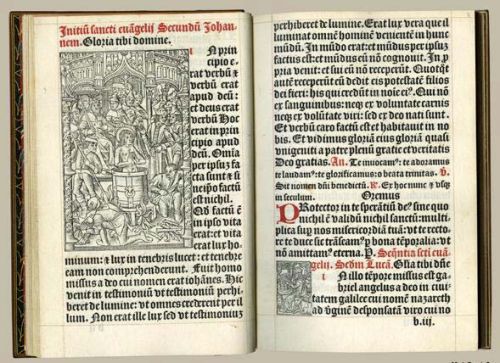 Initiū sancti euāgelij Secundū Johan
nem. Gloria tibi domine.
IN prin
cipio e
rat verbū ⁊
verbū erat
apud deū: et
deus erat
verbū. Hoc
erat in prin
cipio apud
deū. Omīa
per ipsuʒ fa
cta sunt ⁊ si
ne ipso factū
est nichil.
Qd factū ē
in ipso vita
erat: et vita
erat lux ho
minum: ⁊ lux in tenebris lucet: et tenebre
eam non comprehenderunt. Fuit homo
missus a deo cui nomen erat iohānes. Hic
venit in testimoniū vt testimoniū perhi
beret de lumine: vt omnes crederent per il
lum. Non erat ille lux sed vt testimoniuʒ
perhiberet de lumine. Erat lux vera que il
luminat omnē hominē venientē in hunc
mūdū. In mūdo erat: et mūdus per ipsuʒ
factus est: et mūdus eū nō cognouit. In p
pria venit: et sui eū nō receperūt. Quotqt
autē receperūt eū dedit eis potestatē filios
dei fieri: his qui credūt in noīe ei⁹. Qui nō
ex sanguinibus: neqʒ ex voluntate carnis
neqʒ ex voluntate viri: sed ex deo nati sunt.
Et verbū caro factū est: et habitauit in no
bis. Et vidimus gloriā eius gloriā quasi
vnigeniti a patre plenū gratie et veritatis
Deo gratias. An. Te inuocam⁹: te adoramus
te laudam⁹: te glorificamus: o beata trinitas. ℣.
Sit nomen dñi benedictū. ℟. Ex hoc nunc ⁊ vsqʒ
in seculum. Oremus
PRotector in te sperātiū de⁹ sine quo
nichil ē validū nichil sanctū: multi
plica sup nos misericordiā tuā: vt te recto
re te duce sic trāseam⁹ p bona tēporalia: vt
nō amittam⁹ eterna. P. Seqntia scti eu
āgelij. Scdm Lucā. Glīa tibi dñe
IN illo tēpore missus est ga
briel angelus a deo in ciui
tatem galilee cui nomē nazareth
ad vginē desponsatā viro cui no
b.iij.